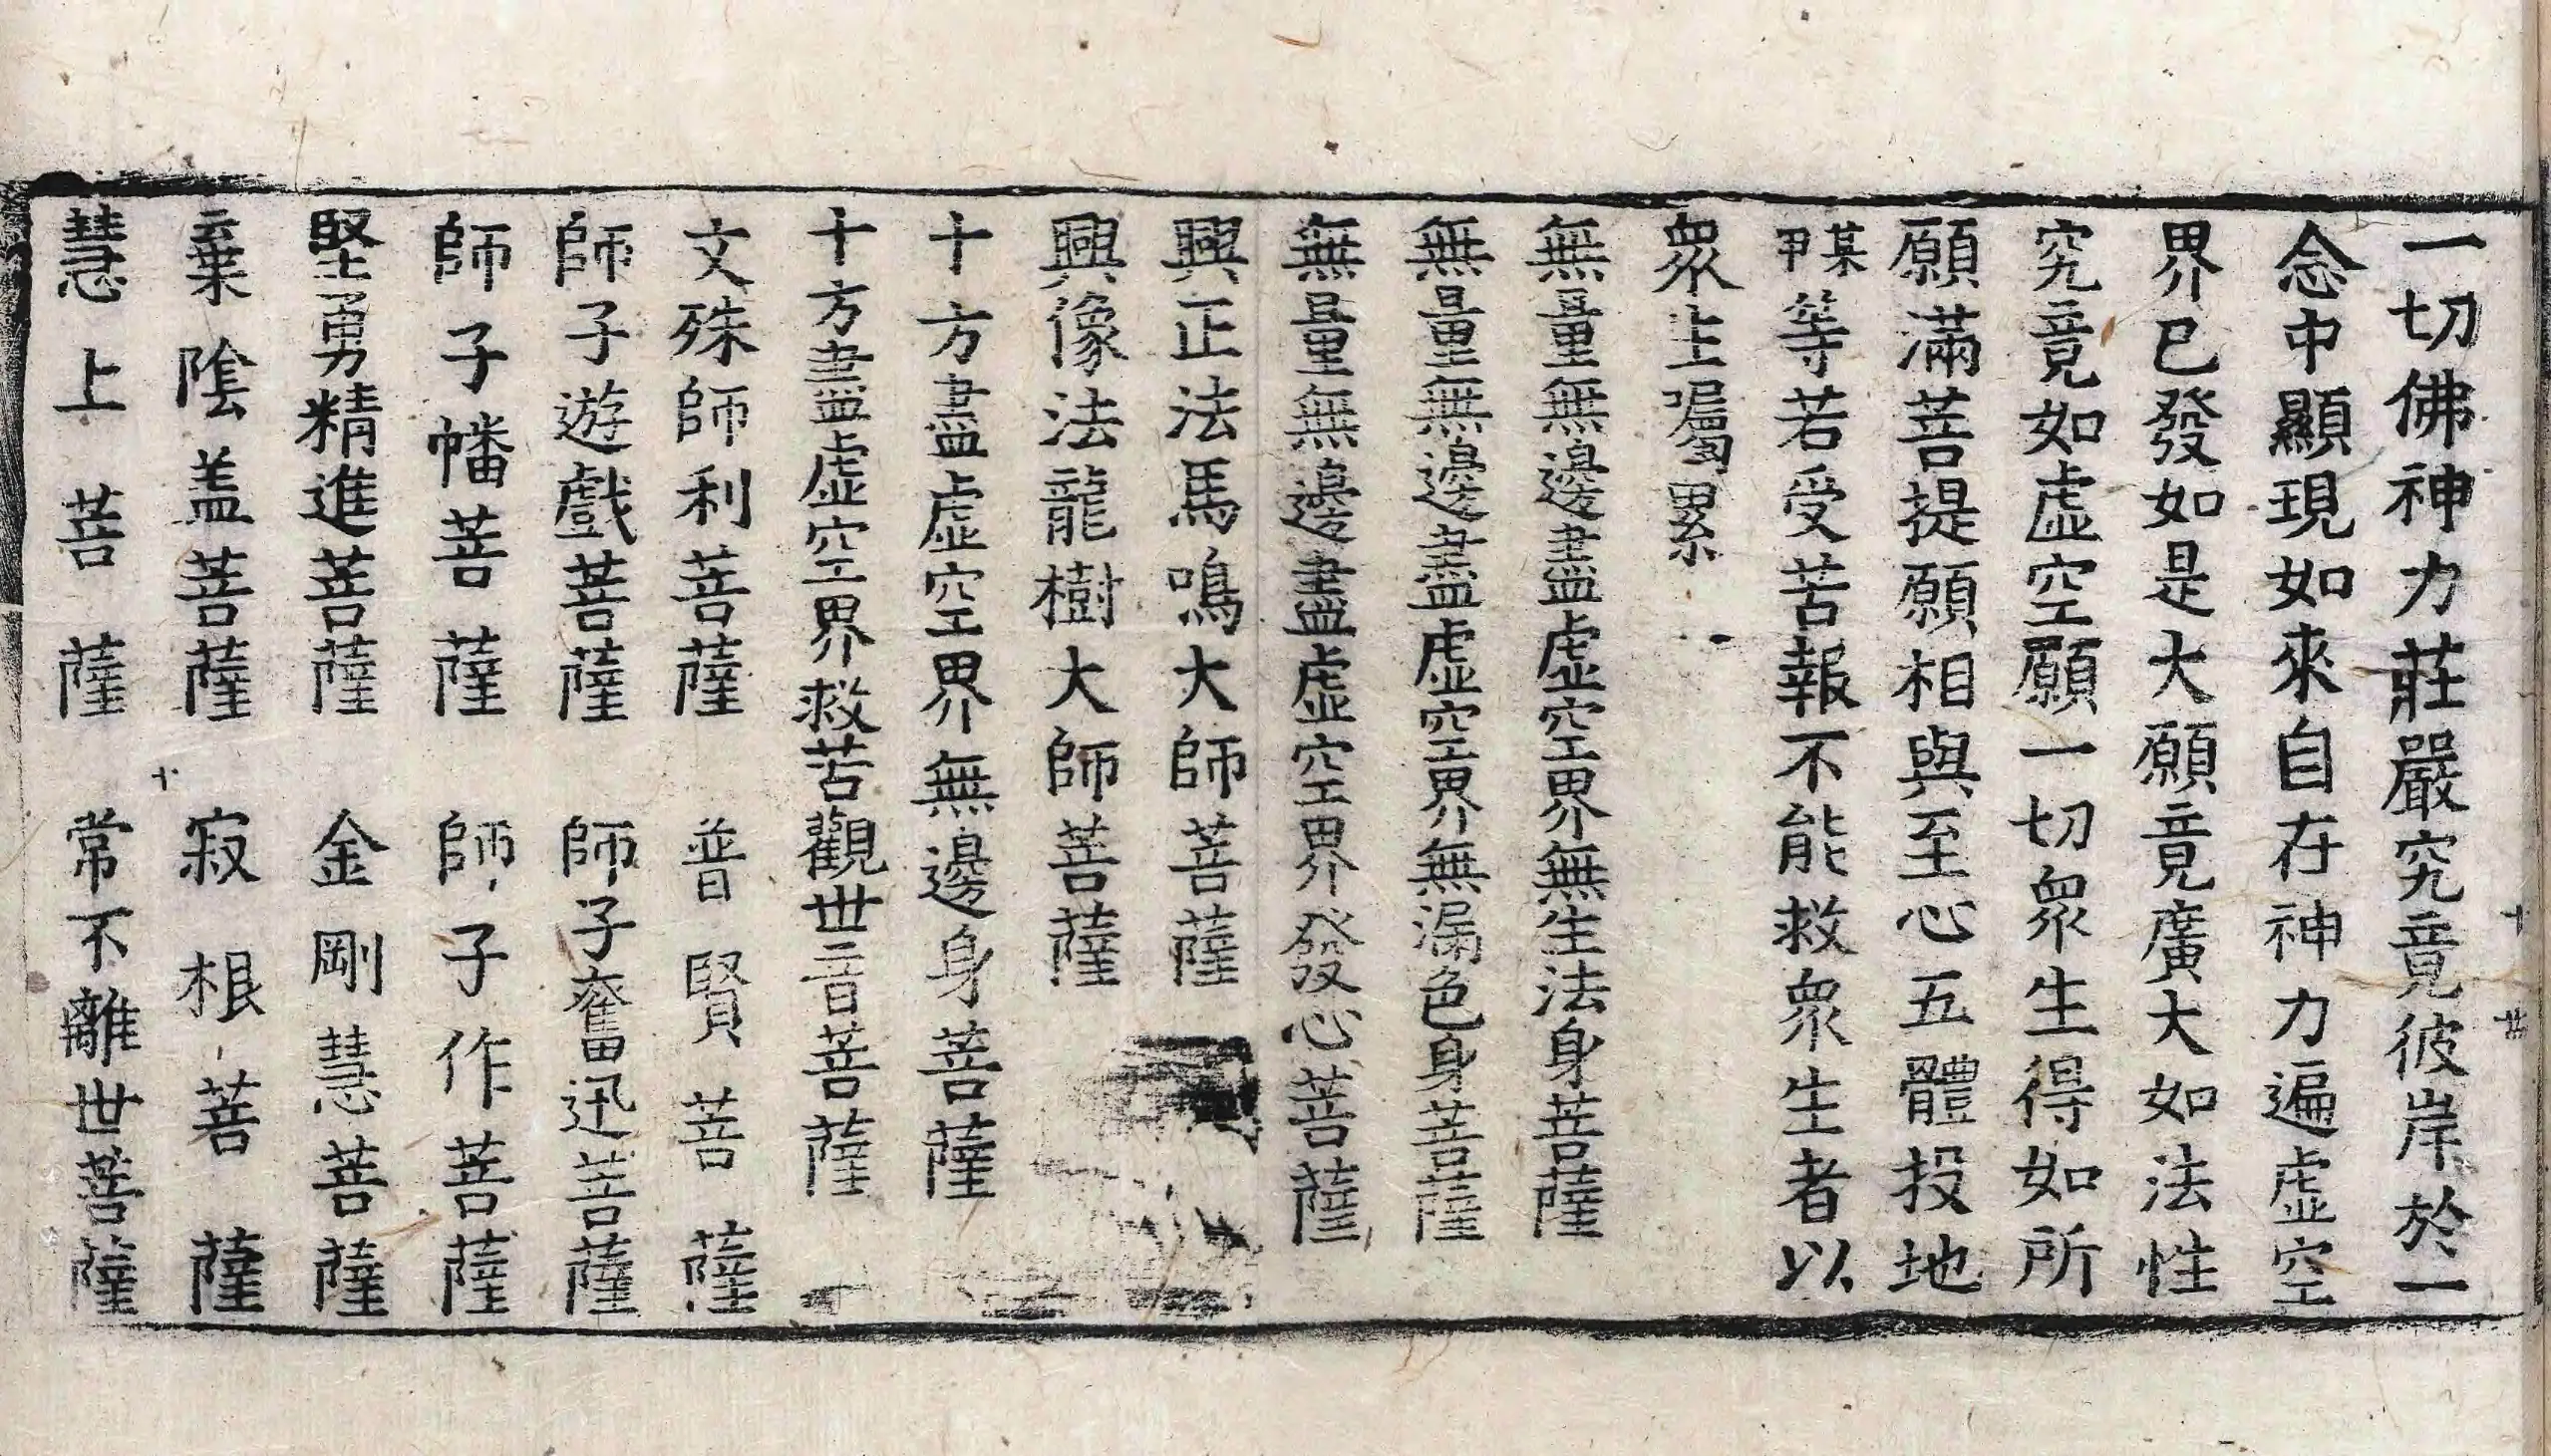 一切佛神力莊嚴究竟彼岸於一
念中顯現如來自在神力遍虛空
界已發如是大願竟廣大如法性
究竟如虛空願一切衆生得如所
願滿菩提願相與至心五體投地
某甲等若受苦報不能救衆生者以
衆生囑累
無量無邊盡虛空界無生法身菩薩
無量無邊盡虛空界無漏色身菩薩
無量無邊盡虛空界發心菩薩
興正法馬鳴大師菩薩
興像法龍樹大師菩薩
十方盡虛空界無邊身菩薩
十方盡虛空界救苦觀世音菩薩
文殊師利菩薩 普賢菩薩
師子遊戲菩薩 師子奮迅菩薩
師子幡菩薩 師子作菩薩
堅勇精進菩薩 金剛慧菩薩
棄陰盖菩薩 寂根菩薩
慧上菩薩 常不離世菩薩